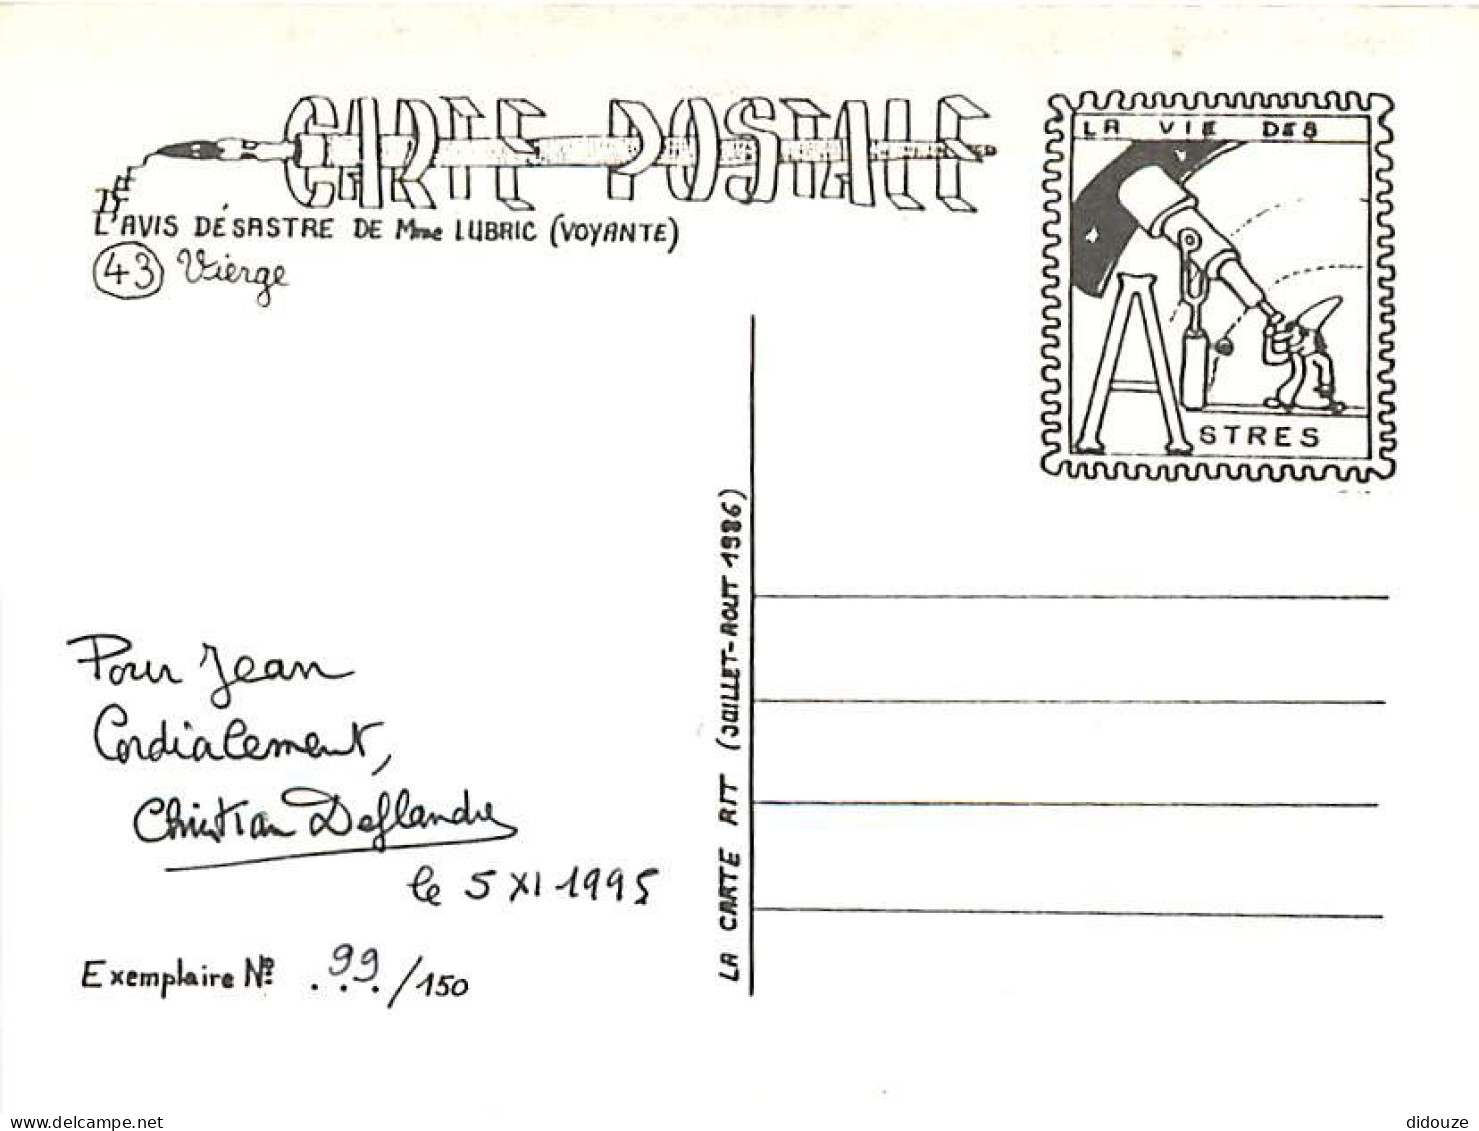 CARTE POSTALE
LA VIE DES
DE
L'AVIS DÉSASTRE DE Mme LUBRIC (VOYANTE)
43 Vierge
ASTRES
LA CARTE RIT (JUILLET-AOUT 1986)
Pour Jean
Cordialement,
Christian Deflandre
le 5 XI 1995
Exemplaire No 99/150
delcampe.net
didouze